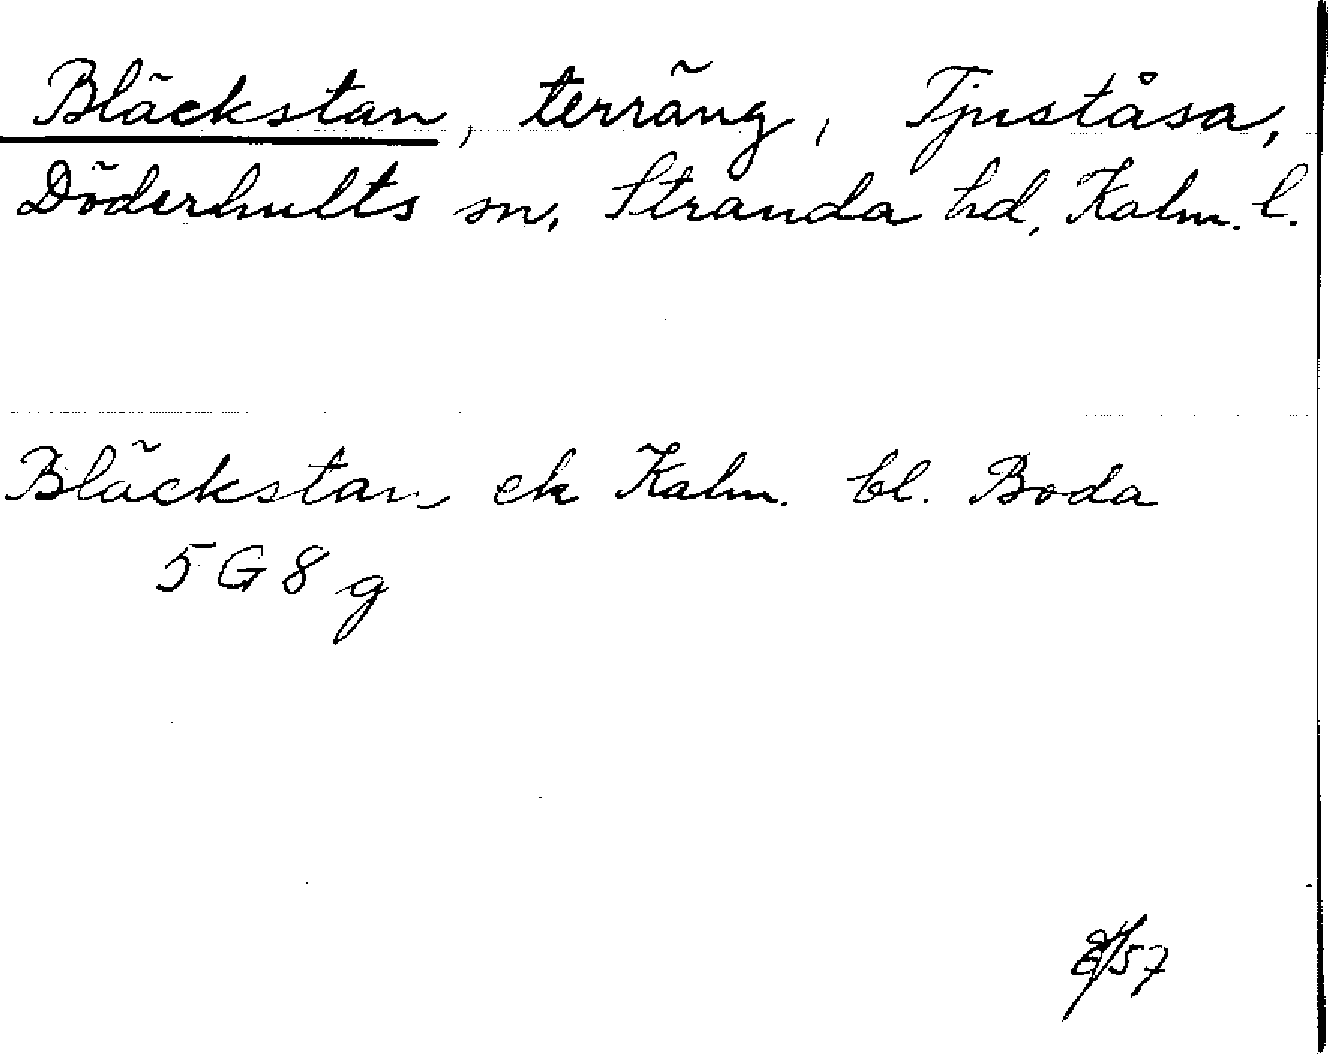 Bläckstan, terräng, Tjuståsa,
Döderhults sn, Stranda hd, Kalm. l.
Bläckstan ek Kalm. bl. Boda
5 G 8 g
57